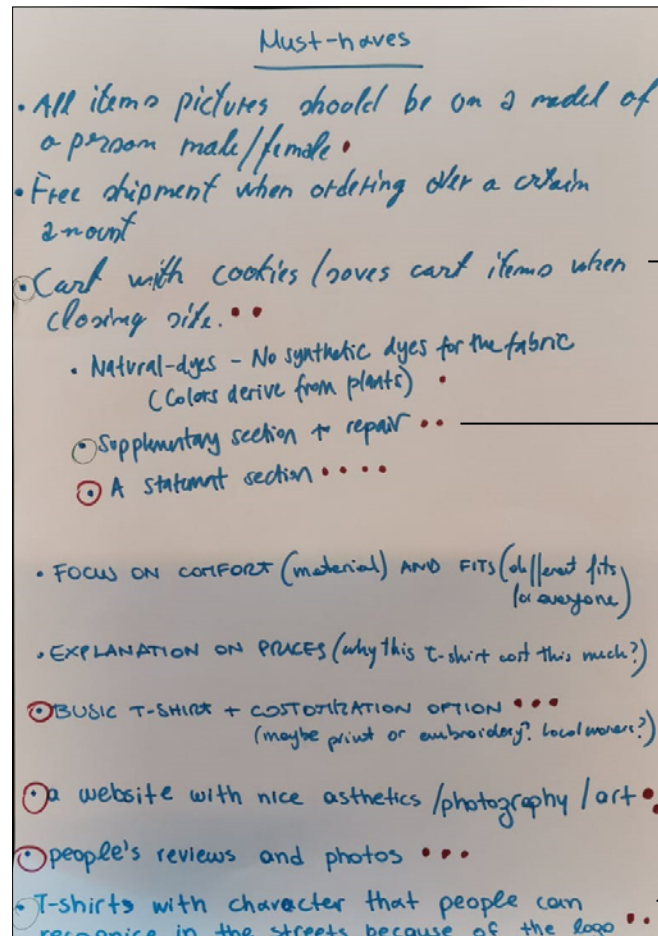 Must-haves
• All items pictures should be on a model of
a person male/female •
• Free shipment when ordering over a certain
amount
• Cart with cookies/saves cart items when
closing site. • •
• Natural-dyes - No synthetic dyes for the fabric
(Colors derive from plants) •
• Supplementary section + repair • •
• A statement section • • • •
• FOCUS ON COMFORT (material) AND FITS (different fits
for everyone)
• EXPLANATION ON PRICES (why this t-shirt cost this much?)
• BUSIC T-SHIRT + COSTOMIZATION OPTION • • •
(maybe print or embroidery? Local workers?)
• a website with nice asthetics/photography/art • •
• people's reviews and photos • • •
• T-shirts with character that people can
recognice in the streets because of the logo • •